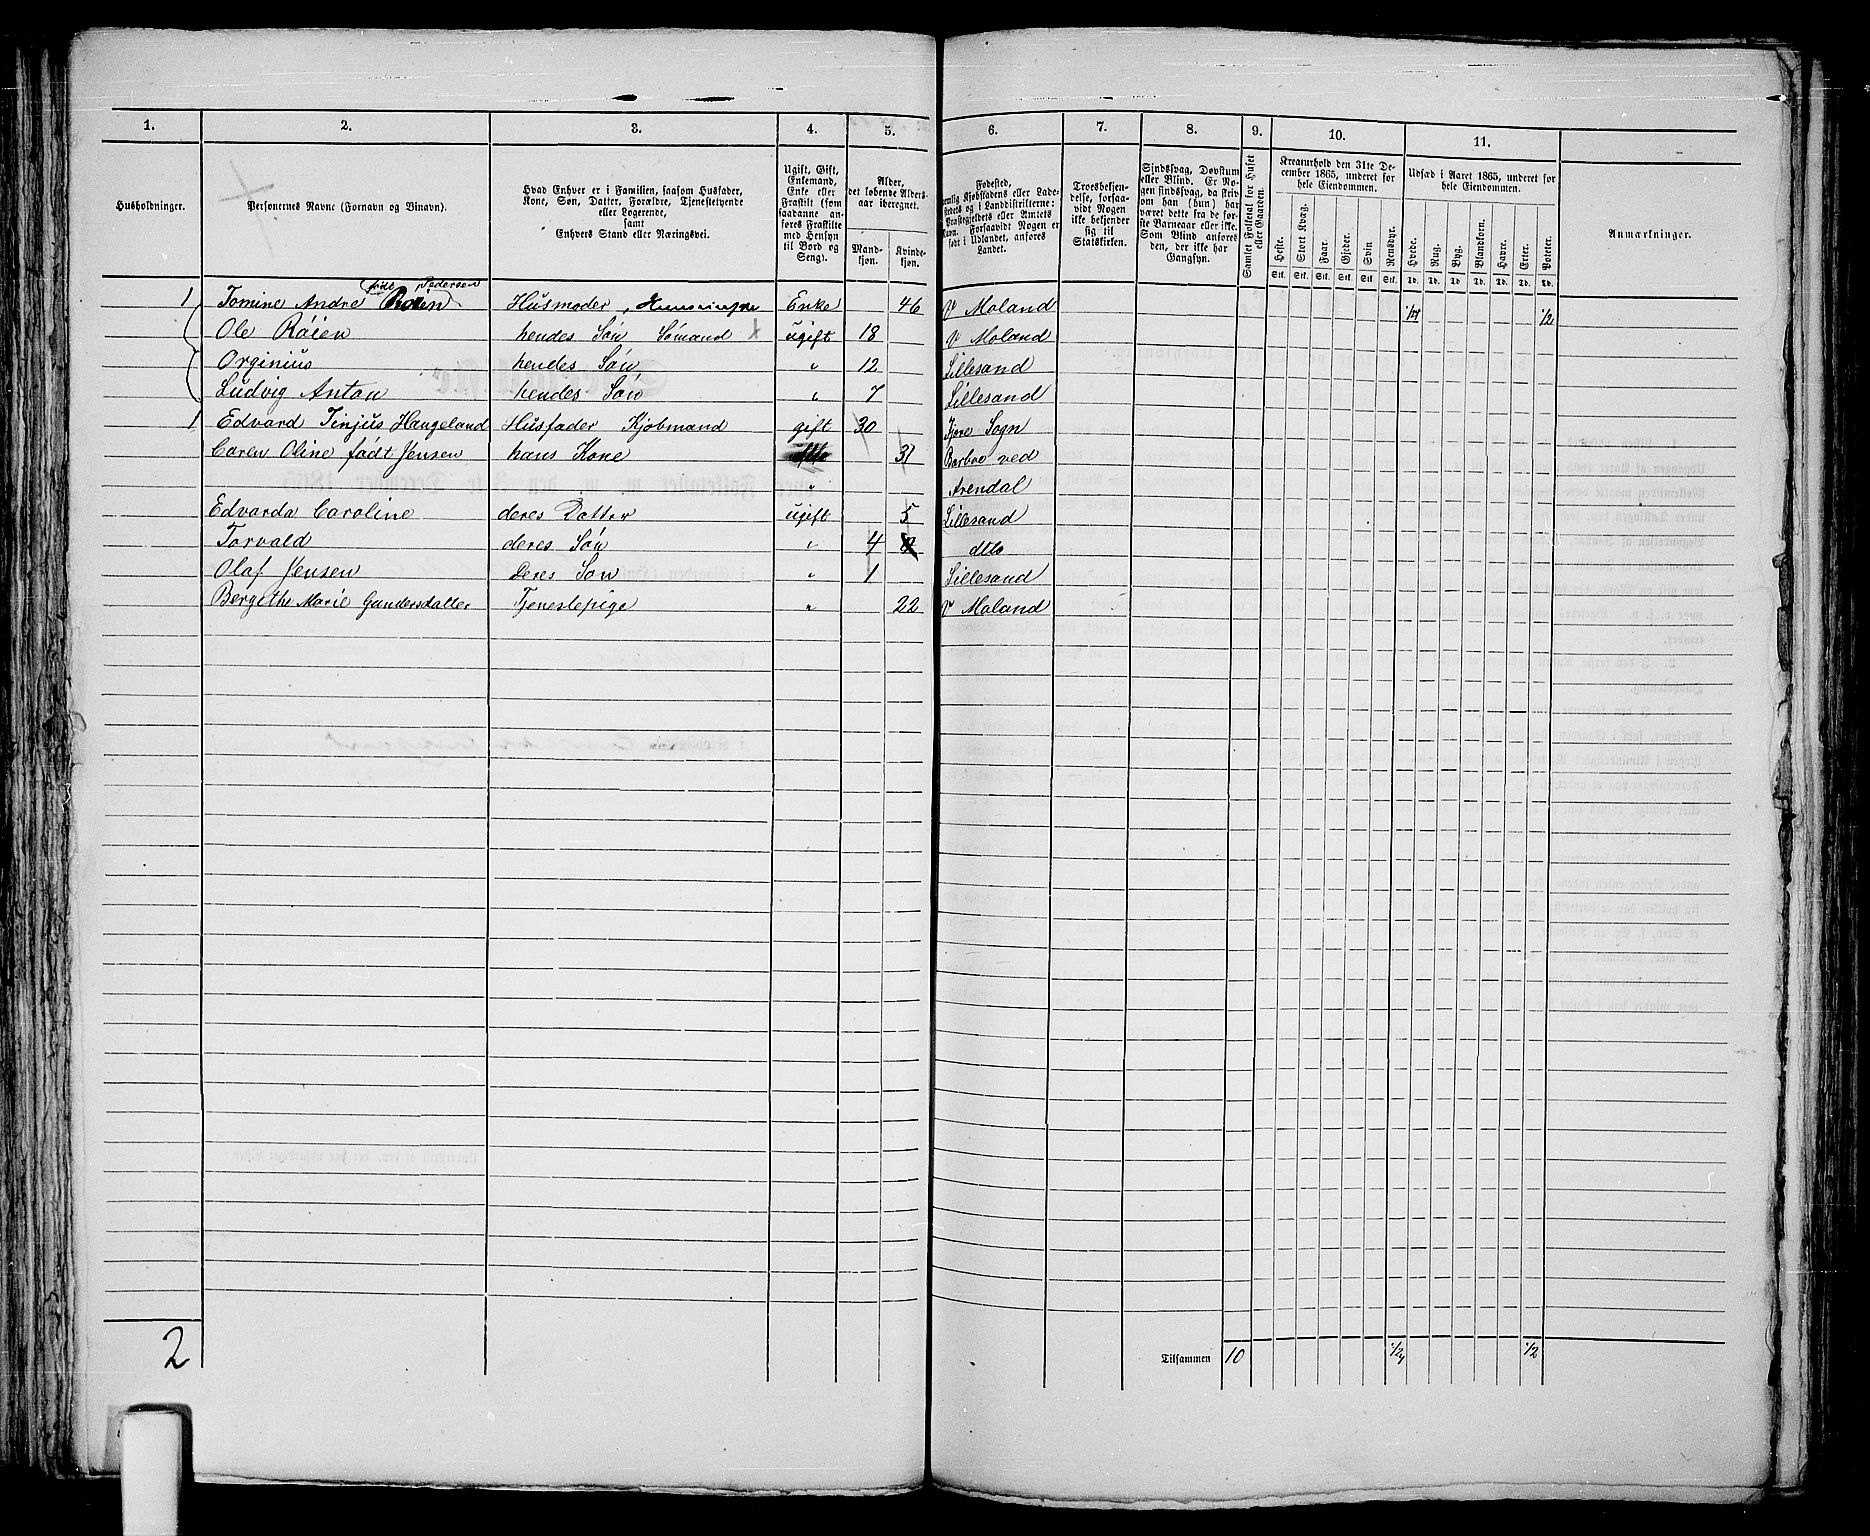 1. 2. 3. 4. 5. 6. 7. 8. 9. 10. 11.
Husholdninger.
Personernes Navne (Fornavn og Binavn).
Hvad Enhver er i Familien, saasom Husfader,
Kone, Søn, Datter, Forældre, Tjenestetyende
eller Logerende,
samt
Enhvers Stand eller Næringsvei.
Ugift, Gift,
Enkemand,
Enke eller
Fraskilt (som
saadanne an-
føres Fraskilte
med Hensyn
til Bord og
Seng).
Alder,
det løbende Alders-
aar iberegnet.
Mand-
kjøn.
Kvinde-
kjøn.
Fødested,
Kjøbstadens eller Lade-
stedets og i Landdistrikterne:
Præstegjeldets eller Amtets
Navn. Forsaavidt Nogen er
født i Udlandet, anføres
Landet.
Troesbekjen-
delse, forsaa-
vidt Nogen
ikke bekjender
sig til
Statskirken.
Sindssvag, Døvstum
eller Blind. Er No-
gen sindssvag, da skriv-
es om han (hun) har
været dette fra de før-
ste Barneaar eller ikke.
Som Blind anføres
den, der ikke har
Gangsyn.
Samlet Folketal for Huset
eller Gaarden.
Kreaturhold den 31te De-
cember 1865, underet for
hele Eiendommen.
Heste. Stort Kvæg. Faar. Gjeder. Svin Rensdyr.
Stk. Stk. Stk. Stk. Stk. Stk.
Udsæd i Aaret 1865, underet for
hele Eiendommen.
Hvede. Rug. Byg. Blandkorn. Havre. Erter. Poteter.
Td. Td. Td. Td. Td. Td. Td.
Anmærkninger.
født Pedersen
1 Tomine Andre Røien Husmoder, Enke 46 V Moland 1/24 1/2
Ole Røien hendes Søn Sømand x ugift 18 V Moland
Orginius hendes Søn " 12 Lillesand
Ludvig Anton hendes Søn " 7 Lillesand
1 Edvard Tinjus Haugeland Husfader Kjøbmand gift 30 Fjære Sogn
Caren Oline født Jensen hans Kone 31 Barboe ved
" Arendal
Edvarda Caroline deres Datter ugift 5 Lillesand
Torvald deres Søn " 4 dtto
Olaf Jensen Deres Søn " 1 Lillesand
Bergethe Marie Gundersdatter Tjenestepige " 22 V Moland
2
Tilsammen 10 1/24 1/2